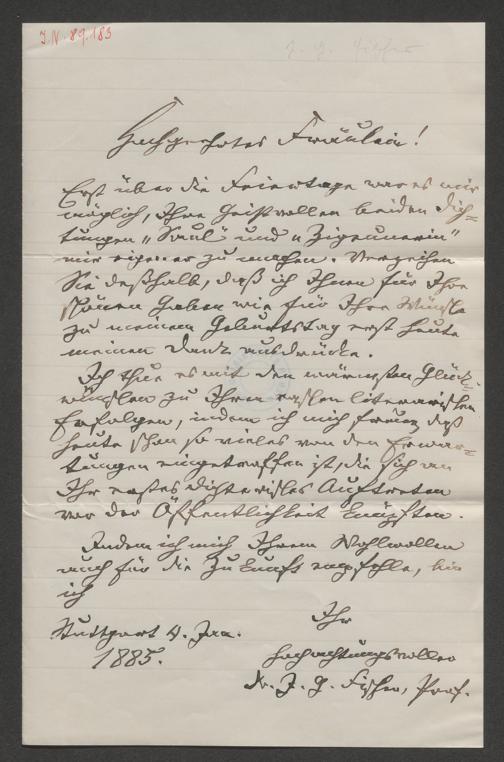 J.N. 89.183
J. G. Fischer
Hochgeehrtes Fräulein!
Erst über die Feiertage war es mir
möglich, Ihre geistvollen beiden Dich=
tungen „Saul“ und „Zigeunerin“
mir eigen er zu machen. Verzeihen
Sie deßhalb, daß ich Ihnen für Ihre
schönen Gaben wie für Ihre Wünsche
zu meinem Geburtstag erst heute
meinen Dank ausdrücke.
Ich thue es mit den wärmsten Glück=
wünschen zu Ihren raschen literarischen
Erfolgen, indem ich mich freue, daß
heute schon so vieles von den Erwar=
tungen eingetroffen ist, die sich an
Ihr erstes dichterisches Auftreten
vor der Öffentlichkeit knüpften.
Indem ich mich Ihrem Wohlwollen
auch für die Zukunft empfehle, bin
ich
Ihr
Stuttgart 4. Jan.
1885.
hochachtungsvoller
Dr. J. G. Fischer, Prof.